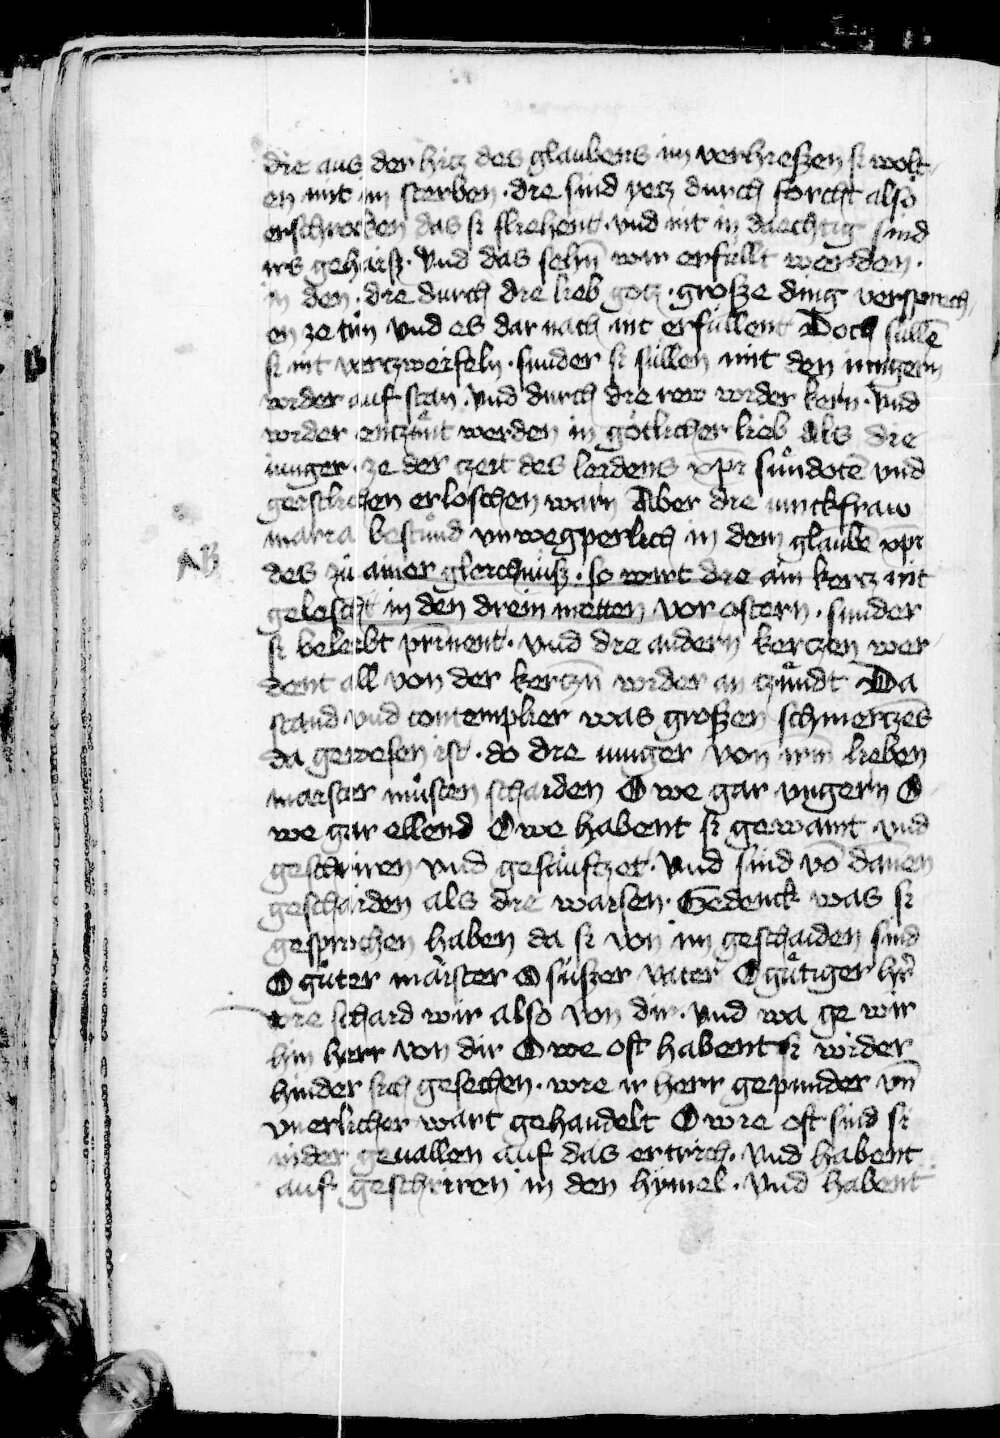 die aus der hitz des glaubens im verhiessen si wolt-
en mit im sterben · die sind yetz durch forcht also
erschrocken das si fliehent · vnd nit in daechtig sind
irs gehaisz · Vnd das sehn̄ wir erfullt werden ·
in den · die durch die lieb gotz · grosze ding versprech-
en ze tůn vnd es dar nach nit erfüllent Doch süllē
si nit verczweifeln · sunder si süllen mit den iungern
wider auf stan · Vnd durch die rew wider kern · Vnd
wider enczünt werden in götlicher lieb Als die
iunger · ze der czeit des leidens xp̄i sundotē vnd
geistlichen erloschen warn Aber die iunckfraw
maria bestůnd vnwegperlich in dem glaubē xp̄i
AB
des zů ainer gleichnüsz · so wirt die ain kercz nit
gelescht in den drein metten vor ostern · sunder
si beleibt prīnent · vnd die andern kerczen wer-
dent all von der kerczn̄ wider an czündt Da
stand vnd contemplier was groszen schmerczēs
da gewesen ist · do die iunger von irm̄ lieben
maister můsten schaiden O we gar vngern O
we gar ellend O we habent si gewaint · vnd
geschriren vnd gesäuftzet · Vnd sind vō dānen
geschaiden als die waisen · Gedenck was si
gesprochen haben da si von im geschaiden sind
O gůter maister O süszer vater O gütiger hr̄
wie schaid wir also von dir · vnd wa ge wir
hin herr von dir O we oft habent si wider
hinder sich gesechen · wie ir herr gepunder vn̄
vnerlicher wart gehandelt O wie oft sind si
nider geuallen auf das ertrich · Vnd habent
auf geschriren in den hymel · Vnd habent